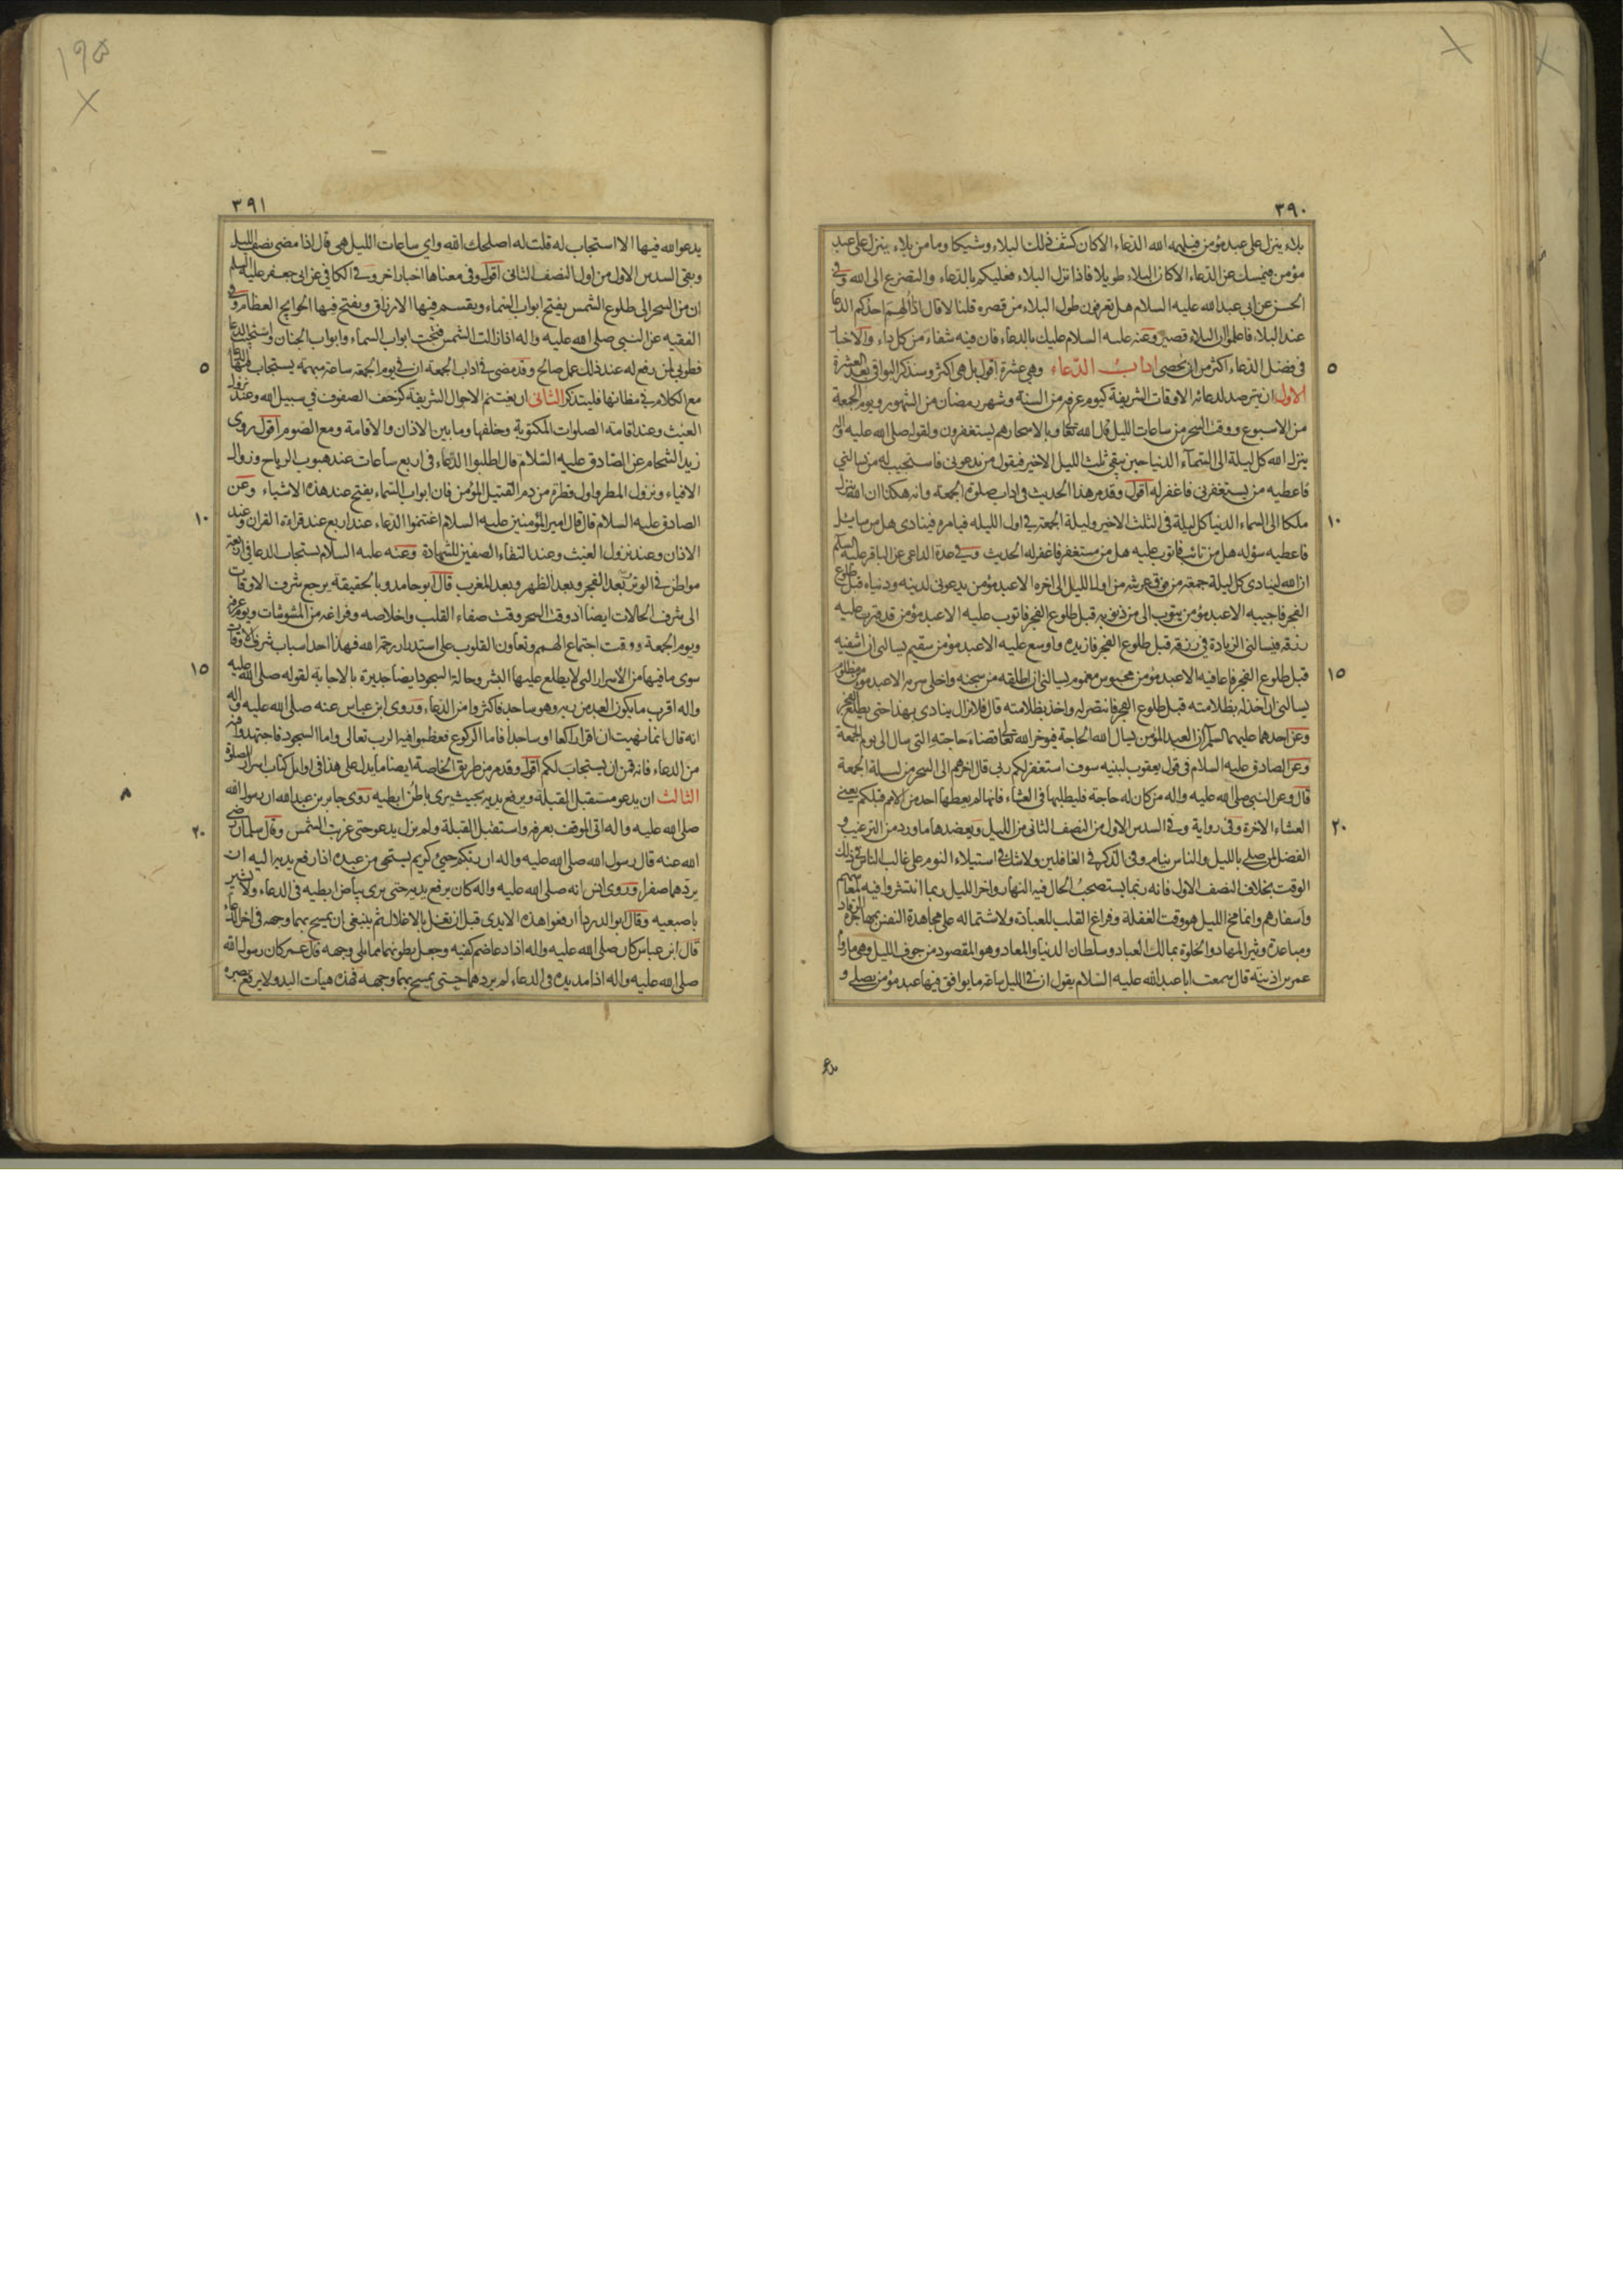 ٣٩٠
بلاء ينزل على عبد مؤمن فيلهمه الله الدعاء الا كان كشف ذلك البلاء وشيكا وما من بلاء ينزل على عبد
مؤمن فيمسك عن الدعاء الا كان البلاء طويلا فاذا نزل البلاء فعليكم بالدعاء والتضرع الى الله وفي
الحسن عن ابي عبد الله عليه السلام هل تعرفون طول البلاء من قصره قلنا لا قال اذا الهم احدكم الدعا
عند البلاء فاعلموا ان البلاء قصير وعنه عليه السلام عليك بالدعاء فان فيه شفاء من كل داء والاخبا
٥
في فضل الدعاء اكثر من ان تحصى اداب الدعاء وهي عشرة اقول بل هي اكثر وسنذكر البواقي بعد العشرة
الاول ان يترصد لدعائه الاوقات الشريفة كيوم عرفه من السنة وشهر رمضان من الشهور ويوم الجمعة
من الاسبوع ووقت السحر من ساعات الليل قال الله تعالى وبالاسحار هم يستغفرون ولقوله صلى الله عليه واله
ينزل الله كل ليلة الى السماء الدنيا حين يبقى ثلث الليل الاخير فيقول من يدعوني فاستجيب له من يسالني
فاعطيه من يستغفرني فاغفر له اقول وقد مر هذا الحديث في اداب صلوة الجمعة وانه هكذا ان الله ينزل
١٠
ملكا الى السماء الدنيا كل ليلة في الثلث الاخير وليلة الجمعة في اول الليله فيامره فينادى هل من سايل
فاعطيه سؤله هل من تائب فاتوب عليه هل من مستغفر فاغفر له الحديث وفي عدة الداعي عن الباقر عليه السلم
ان الله لينادى كل ليلة جمعة من فوق عرشه من اول الليل الى اخره الا عبد مؤمن يدعوني لدينه ودنياه قبل طلوع
الفجر فاجيبه الا عبد مؤمن يتوب الي من ذنوبه قبل طلوع الفجر فاتوب عليه الا عبد مؤمن قد قترت عليه
رزقه فيسالني الزيادة في رزقه قبل طلوع الفجر فازيده واوسع عليه الا عبد مؤمن سقيم يسالني ان اشفيه
١٥
قبل طلوع الفجر فاعافيه الا عبد مؤمن محبوس مغموم يسالني ان اطلقه من سجنه واخلي سربه الا عبد مؤمن مظلوم
يسالني ان اخذ له بظلامته قبل طلوع الفجر فانتصر له واخذ بظلامته قال فلا يزال ينادى بهذا حتى يطلع الفجر
وعن احدهما عليهما السلم ان العبد المؤمن يسال الله الحاجة فيوخر الله تعالى قضاء حاجته التي سال الى يوم الجمعة
وعن الصادق عليه السلام في قول يعقوب لبنيه سوف استغفر لكم ربي قال اخرهم الى السحر من ليلة الجمعة
قال وعن النبي صلى الله عليه واله من كان له حاجة فليطلبها في العشاء فانها لم يعطها احد من الامم قبلكم يعني
٢٠
العشاء الاخرة وفي رواية وفي السدس الاول من النصف الثاني من الليل ويعضدها ما ورد من الترغيب و
الفضل لمن صلى بالليل والناس نيام وفي الذكر في الغافلين ولا شك في استيلاء النوم على غالب الناس في ذلك
الوقت بخلاف النصف الاول فانه ربما يستصحب الحال فيه النهار واخر الليل ربما انتشروا فيه لمعاشهم
واسفارهم وانما مخ الليل هو وقت الغفلة وفراغ القلب للعبادة ولاشتماله على مجاهدة النفس ومهاجرة الرقاد
ومباعدة وثير المهاد والخلوة بمالك العباد وسلطان الدنيا والمعاد وهو المقصود من جوف الليل وهي ما رواه
عمر بن اذينة قال سمعت ابا عبد الله عليه السلام يقول ان في الليل ساعة ما يوافق فيها عبد مؤمن يصلي و
يدعو
١٩٥
٣٩١
يدعو الله فيها الا استجاب له قلت له اصلحك الله واي ساعات الليل هي قال اذا مضى نصف الليل
وبقي السدس الاول من اول النصف الثاني اقول وفي معناها اخبار اخر وفي الكافي عن ابي جعفر عليه السلم
ان من السحر الى طلوع الشمس يفتح ابواب السماء ويقسم فيها الارزاق ويفتح فيها الحوايج العظام وفي
الفقيه عن النبي صلى الله عليه واله اذا زالت الشمس فتحت ابواب السماء وابواب الجنان واستجيب الدعا
٥
فطوبى لمن رفع له عند ذلك عمل صالح وقد مضى في اداب الجمعة ان في يوم الجمعة ساعة مبهمة يستجاب فيها الدعا
مع الكلام في مظانها فليتذكر الثاني ان يغتنم الاحوال الشريفة كزحف الصفوف في سبيل الله وعند نزول
الغيث وعند اقامة الصلوات المكتوبة وخلفها وما بين الاذان والاقامة ومع الصوم اقول روى
زيد الشحام عن الصادق عليه السلام قال اطلبوا الدعاء في اربع ساعات عند هبوب الرياح وزوال
الافياء ونزول المطر واول قطرة من دم القتيل المؤمن فان ابواب السماء يفتح عند هذه الاشياء وعن
١٠
الصادق عليه السلام قال قال امير المؤمنين عليه السلام اغتنموا الدعاء عند اربع عند قراءة القران وعند
الاذان وعند نزول الغيث وعند التقاء الصفين للشهادة وعنه عليه السلام يستجاب الدعا في اربعة
مواطن في الوتر وبعد الفجر وبعد الظهر وبعد المغرب قال ابو حامد وبالحقيقة يرجع شرف الاوقات
الى شرف الحالات ايضا اذ وقت السحر وقت صفاء القلب واخلاصه وفراغه من المشوشات ويوم عرفة
ويوم الجمعة ووقت اجتماع الهمم وتعاون القلوب على استدرار رحمة الله فهذا احد اسباب شرف الاوقات
١٥
سوى ما فيها من الاسرار التي لا يطلع عليها البشر وحالة السجود ايضا جديرة بالاجابة لقوله صلى الله عليه
واله اقرب ما يكون العبد من ربه وهو ساجد فاكثروا من الدعاء وروى ابن عباس عنه صلى الله عليه واله
انه قال انما نهيت ان اقرا راكعا او ساجدا فاما الركوع فعظموا فيه الرب تعالى واما السجود فاجتهدوا فيه
من الدعاء فانه قمن ان يستجاب لكم اقول وقد مر من طريق الخاصة ايضا ما يدل على هذا في اوايل كتاب اسرار الصلوة
الثالث ان يدعو مستقبل القبلة ويرفع يديه بحيث يرى باطن ابطيه روى جابر بن عبد الله ان رسول الله
٢٠
صلى الله عليه واله اتى الموقف بعرفه واستقبل القبلة ولم يزل يدعو حتى غربت الشمس وقال سلمان رضي
الله عنه قال رسول الله صلى الله عليه واله ان ربكم حيي كريم يستحي من عبده اذا رفع يديه اليه ان
يردهما صفرا وروى انس انه صلى الله عليه واله كان يرفع يديه حتى يرى بياض ابطيه في الدعاء ولا يشير
باصبعيه وقال ابو الدرداء ارفعوا هذه الايدى قبل ان تغل بالاغلال ثم ينبغي ان يمسح بهما وجهه في اخر الدعاء
قال ابن عباس كان صلى الله عليه واله اذا دعا ضم كفيه وجعل بطونهما مما يلي وجهه قال عمر كان رسول الله
صلى الله عليه واله اذا مد يديه في الدعاء لم يردهما حتى يمسح بهما وجهه فهذه هيات اليد ولا يرفع بصره
٨